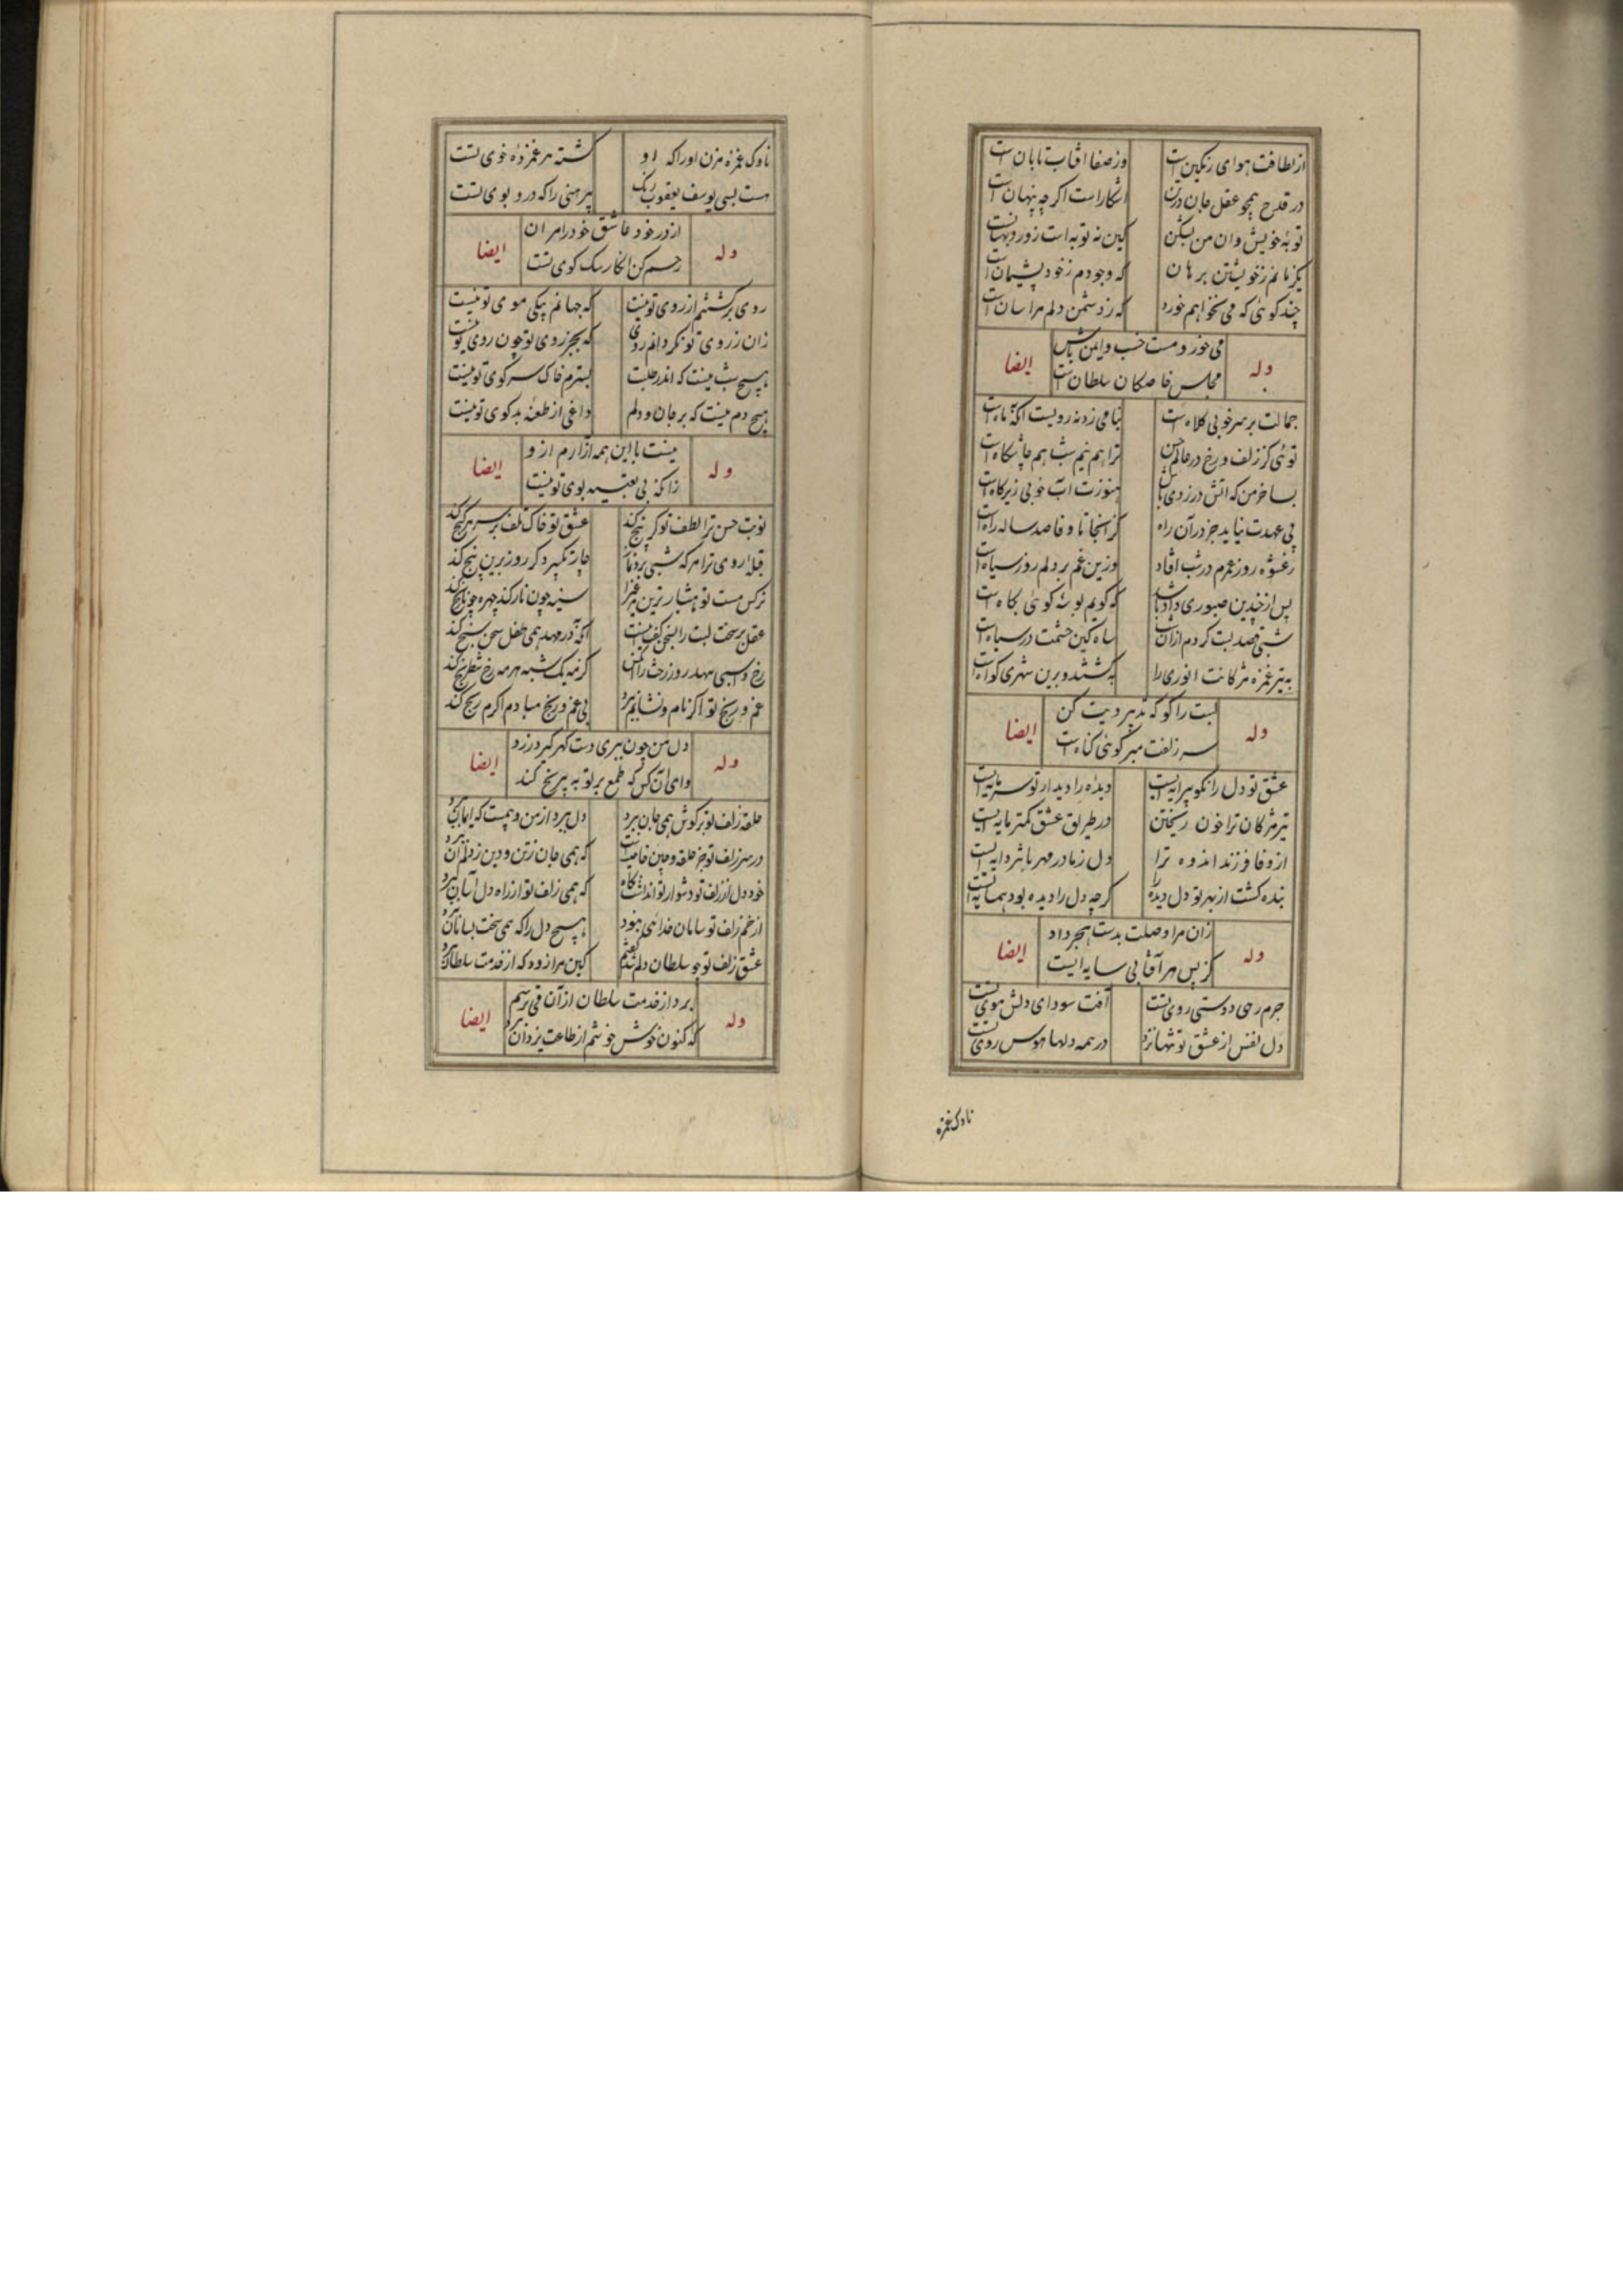 از لطافت هوای رنگین است وز صفا افتاب تابان است
در قدح همچو عقل جان درتن اشکار است اکرچه پنهان است
توبهٔ خویش وان من بشکن کین نه توبه است زور و بهتانست
یکزمانم ز خویشتن برهان که وجودم ز خود پشیمان است
چند کوئی که می نخواهم خورد که ز دشمن دلم هراسان است
وله می خور و مست خسب و ایمن باش ایضا
مجلس خاصکان سلطان است
جمالت بر سر خوبی کلاه است بنامیزد نه رویست آنکه ماه است
توئی کز زلف و رخ در عالم حسن ترا هم نیم شب هم چاشتکاه است
بسا خرمن که اتش در زدی باش هنوزت آب خوبی زیر کاه است
پی عهدت نیاید جز در آن راه کز انجا تا وفا صد ساله راه است
ز عشوه روز عمرم در شب افتاد وزین غم بر دلم روز سیاه است
پس از چندین صبوری داد باشد که کویم بوسهٔ کوئی بکاه است
شبی قصد لبت کردم از آن شب سپاه کین چشمت در سپاه است
به تیر غمزه مژکانت انوری را بکشتند و برین شهری کواه است
وله لبت را کو که تدبیر دیت کن ایضا
سر زلفت مبر کوئی کناه است
عشق تو دل را نکو پیرایه ایست دیده را دیدار تو سرمایه ایست
تیر مژکان ترا خون ریختن در طریق عشق کمتر مایه ایست
از وفا فرزند اندوه ترا دل ز مادر مهربانتر دایه ایست
بنده کشت از بهر تو دل دیده را کرچه دل را دیده بود همسایه ایست
وله زان مرا وصلت بدست هجر داد ایضا
کز پس هر آفتابی سایه ایست
جرم رهی دوستی روی تست آفت سودای دلش موی تست
دل نفس از عشق تو تنها نزد در همه دلها هوس روی تست
ناوک غمزه
ناوک غمزه مزن اورا که او کشته هر غمزدهٔ خوی تست
هست بسی یوسف یعقوب رنک پیرهنی را که درو بوی تست
وله از در خود عاشق خود را مران ایضا
رحم کن انکار سک کوی تست
روی برکشتنم از روی تو نیست که جهانم بیکی موی تو نیست
زان ز روی تو نکردانم روی که بجز روی تو چون روی تو نیست
هیچ شب نیست که اندر طلبت بسترم خاک سر کوی تو نیست
هیچ دم نیست که بر جان و دلم داغی از طعنه بدکوی تو نیست
وله نیست با این همه آزارم از و ایضا
زانکه بی تعبیه بوی تو نیست
نوبت حسن ترا لطف تو کر پنج کند عشق تو خاک تلف بر سر هر کنج کند
قبلهٔ روی ترا هر که شبی برد نماز چار تکبیر دکر روز برین پنج کند
نرکس مست تو هشیارترین سینه چون نار کند چهره چو نارنج کند
عقل بر سخت لبت را بسخن کفت اینست آنکه در مهد همی طفل سخن سنج کند
رخ و اسبی بنهد روز رخت را کر نه یک شبه هر مه رخ شطرنج کند
غم و رنج تو اکر نام و نشانم ببرد بی غم و رنج مبادم اکرم رنج کند
وله دل من چون ببری دست کهر کیر در زد ایضا
وای آن کس که طمع بر تو به پیرنج کند
حلقهٔ زلف تو بر کوش همی جان ببرد دل ببرد از من و بیمست که ایمان ببرد
در سر زلف تو جز حلقه و چین خاصیت است که همی جان ز تن و دین ز دل آن ببرد
خود دل از زلف تو دشوار توان داشت نکاه که همی زلف تو از راه دل آسان ببرد
از خم زلف تو سامان هیچ دل را که همی سخت بسامان ببرد
عشق زلف تو چو سلطان دلم شد کفتم کین مرا زود که از خدمت سلطان ببرد
وله برد از خدمت سلطان از آن می ترسم ایضا
که کنون خوش خوشم از طاعت یزدان ببرد